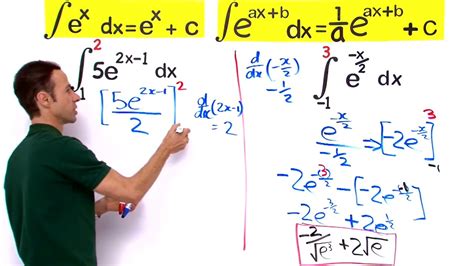 ∫e^x dx = e^x + c
∫e^(ax+b) dx = 1/a e^(ax+b) + c
∫_-1^2 5e^(2x-1) dx
[5e^(2x-1)/2]^2
d/dx(2x-1)
= 2
d/dx(-x/2)
-1/2
∫_-1^3 e^(-x/2) dx
e^(-x/2)/(-1/2) ⇒ [-2e^(-x/2)]^3
-2e^(-(3)/2) - [-2e^(-(-1)/2)]
-2e^(-3/2) + 2e^(1/2)
-2/√e^3 + 2√e